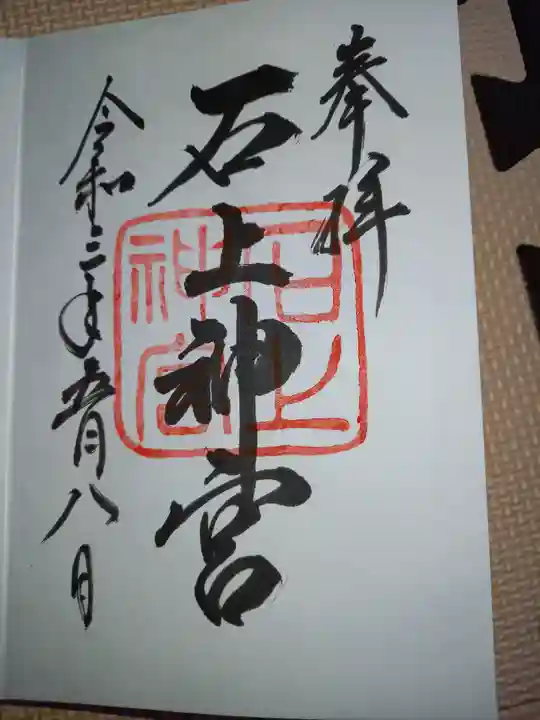 奉拝
石上神宮
石上
神宮
令和三年五月八日